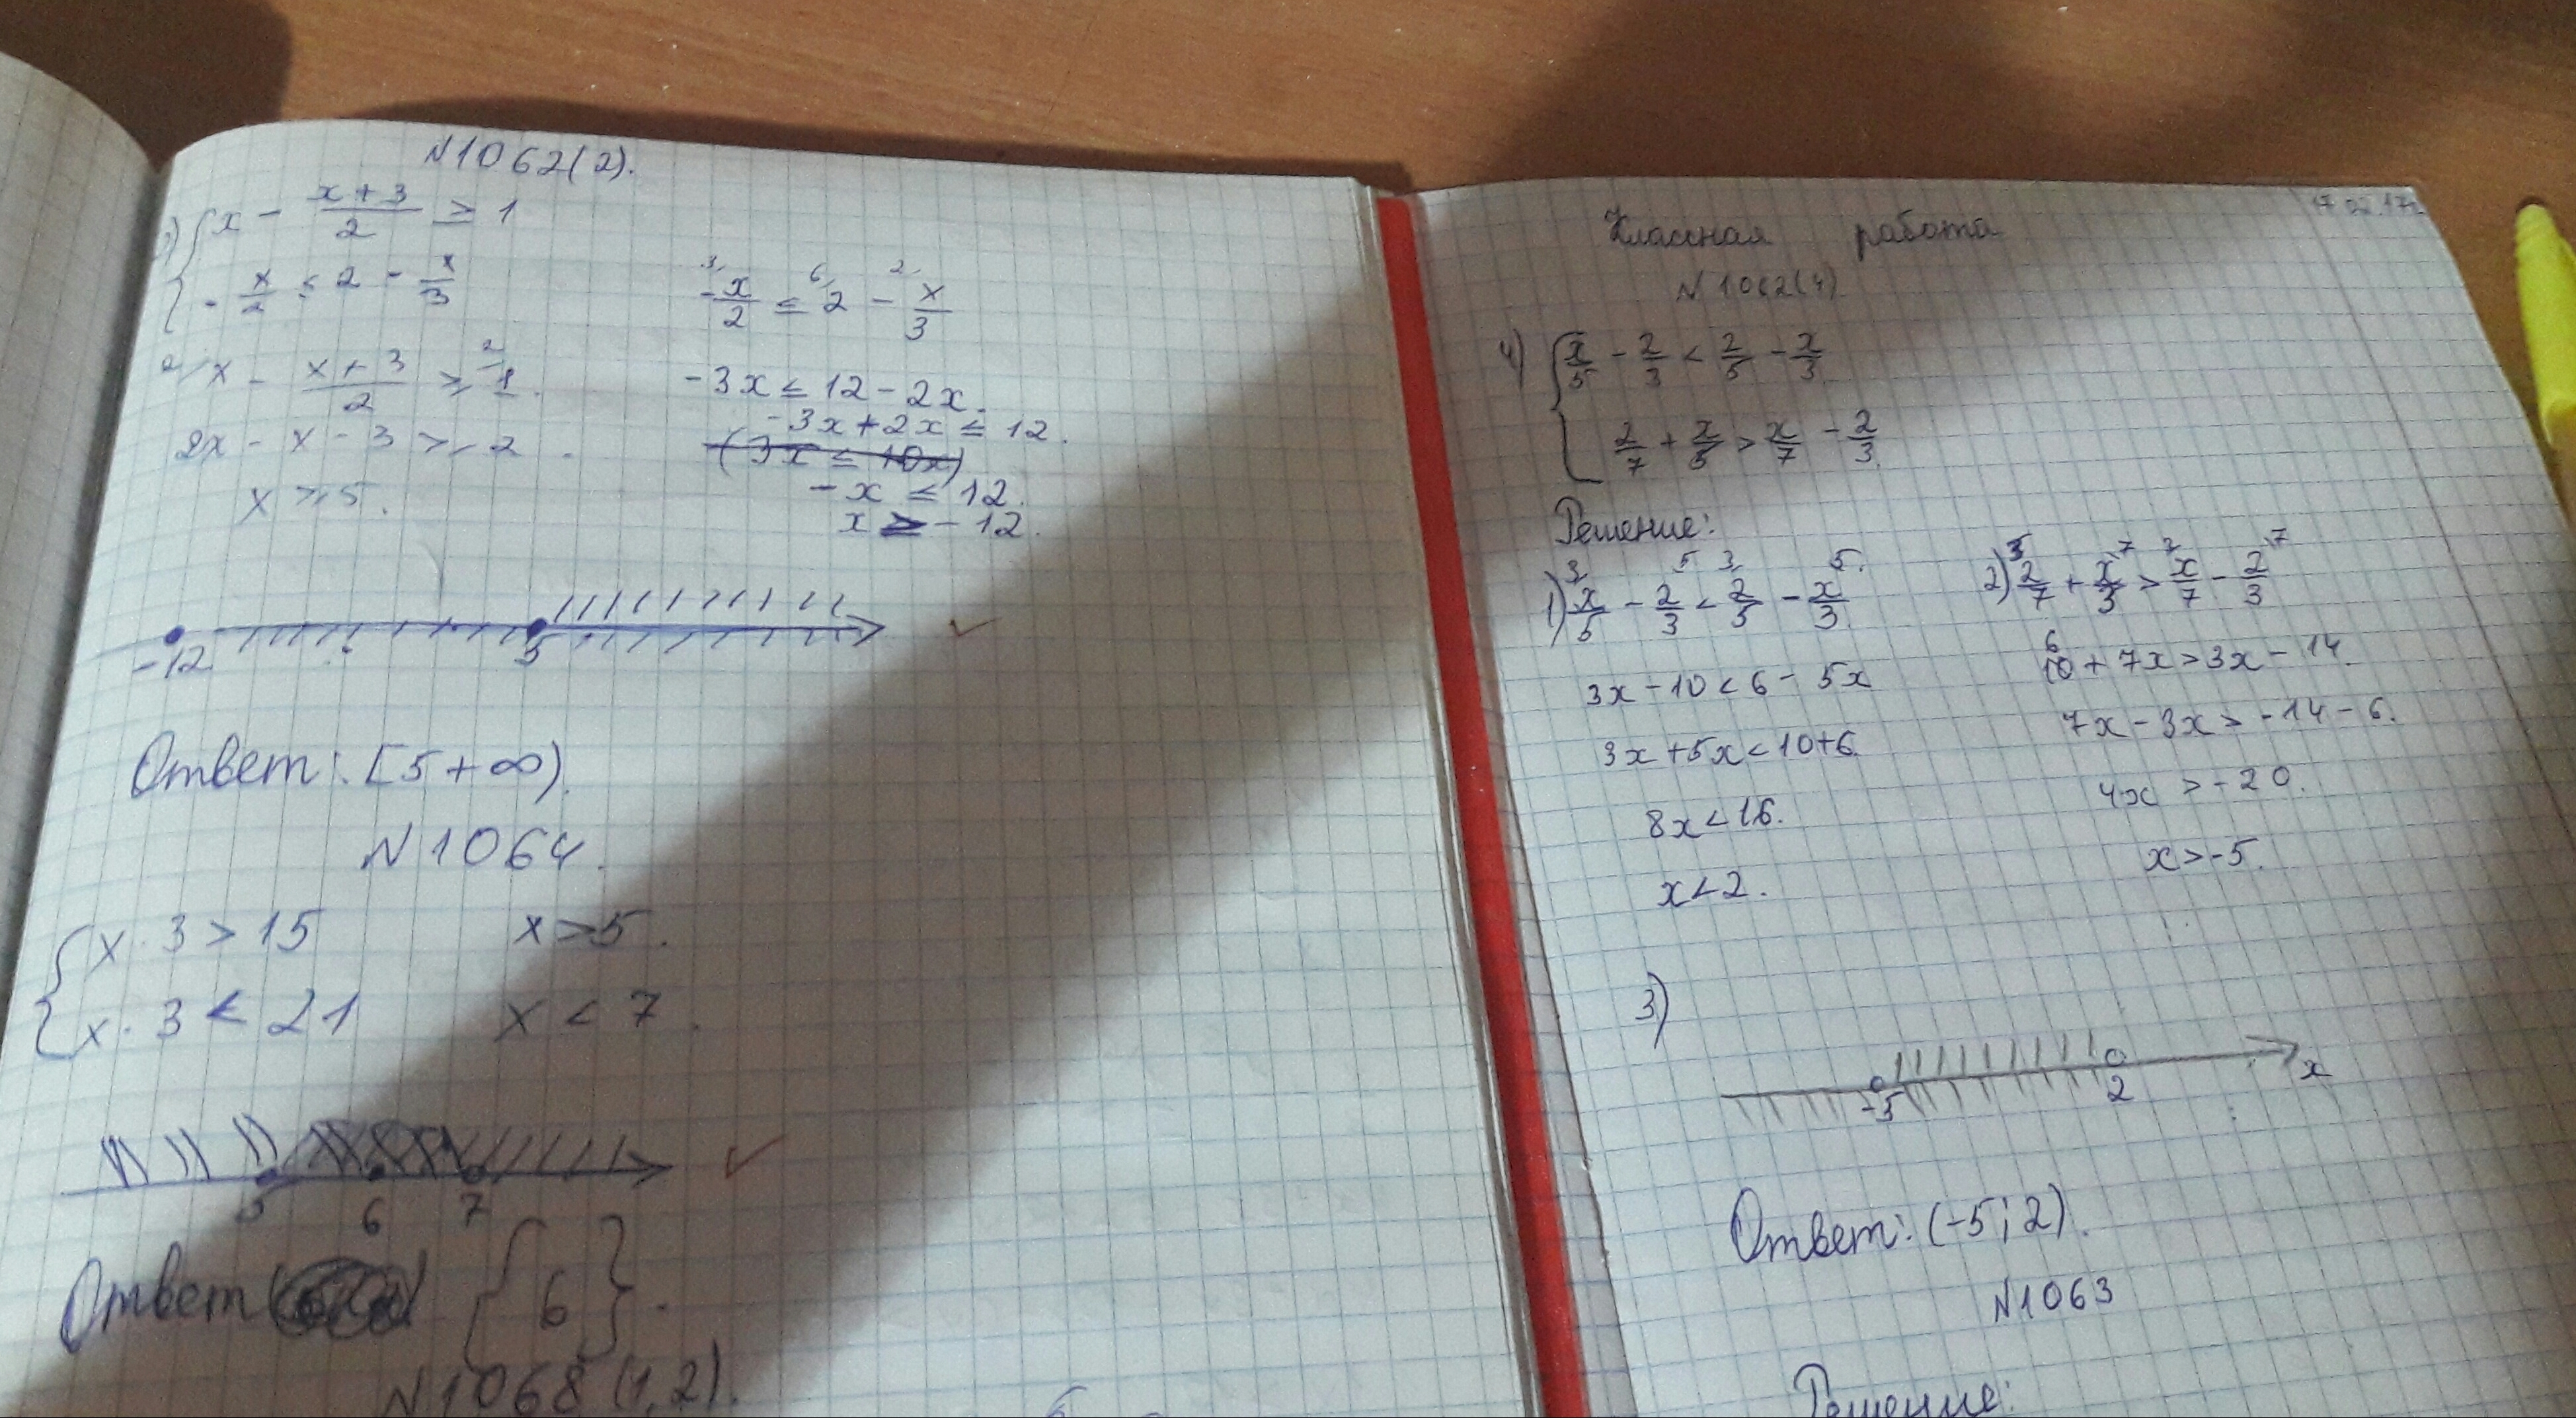 N1062(2).
2) { x - (x+3)/2 ≥ 1
- x/2 ≤ 2 - x/3
2/ x - (x+3)/2 ≥ 1 2/
2x - x - 3 ≥ 2.
x ≥ 5.
3/ - x/2 ≤ 6/ 2 - 2/ x/3
-3x ≤ 12 - 2x.
-3x + 2x ≤ 12.
(3x ≤ 10x)
-x ≤ 12.
x ≥ -12.
-12 5
Ответ: [5+∞).
N1064.
{ x·3 > 15 x > 5.
x·3 < 21 x < 7.
5 6 7
Ответ {6}.
N1068(1,2).
17.02.17г
Классная работа
N1062(4)
4) { x/5 - 2/3 < 2/5 - x/3
2/7 + x/3 > x/7 - 2/3.
Решение:
1) x/5 - 2/3 < 2/5 - x/3.
3x - 10 < 6 - 5x
3x + 5x < 10+6.
8x < 16.
x < 2.
2) 2/7 + x/3 > x/7 - 2/3
6 + 7x > 3x - 14.
7x - 3x > -14 - 6.
4x > -20.
x > -5.
3)
-5 2 x
Ответ: (-5; 2).
N1063
Решение: